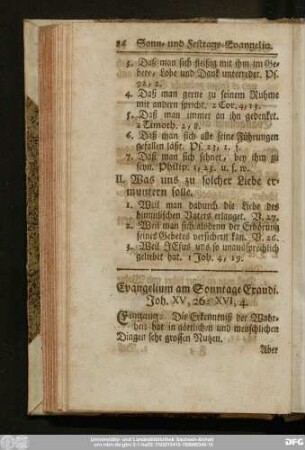 86 Sonn- und Festtags-Evangelia.
3. Daß man sich fleißig mit ihm im Ge-
bete, Lobe und Dank unterredet. Ps.
92, 2.
4. Daß man gerne zu seinem Ruhme
mit andern spricht. 2 Cor. 4, 13.
5. Daß man immer an ihn gedenket.
2 Timoth. 2, 8.
6. Daß man sich alle seine Führungen
gefallen läßt. Ps. 23, 1. f.
7. Daß man sich sehnet, bey ihm zu
seyn. Philip. 1, 23. u. s. w.
II. Was uns zu solcher Liebe er-
muntern solle.
1. Weil man dadurch die Liebe des
himmlischen Vaters erlanget. V. 27.
2. Weil man sich alsdenn der Erhörung
seines Gebetes versichern kan. V. 26.
3. Weil JEsus uns so unaussprechlich
geliebet hat. 1 Joh. 4, 19.
Evangelium am Sonntage Exaudi.
Joh. XV, 26: XVI, 4.
Eingang: Die Erkenntniß der Wahr-
heit hat in göttlichen und menschlichen
Dingen sehr grossen Nutzen.
Aber
Universitäts- und Landesbibliothek Sachsen-Anhalt
DFG